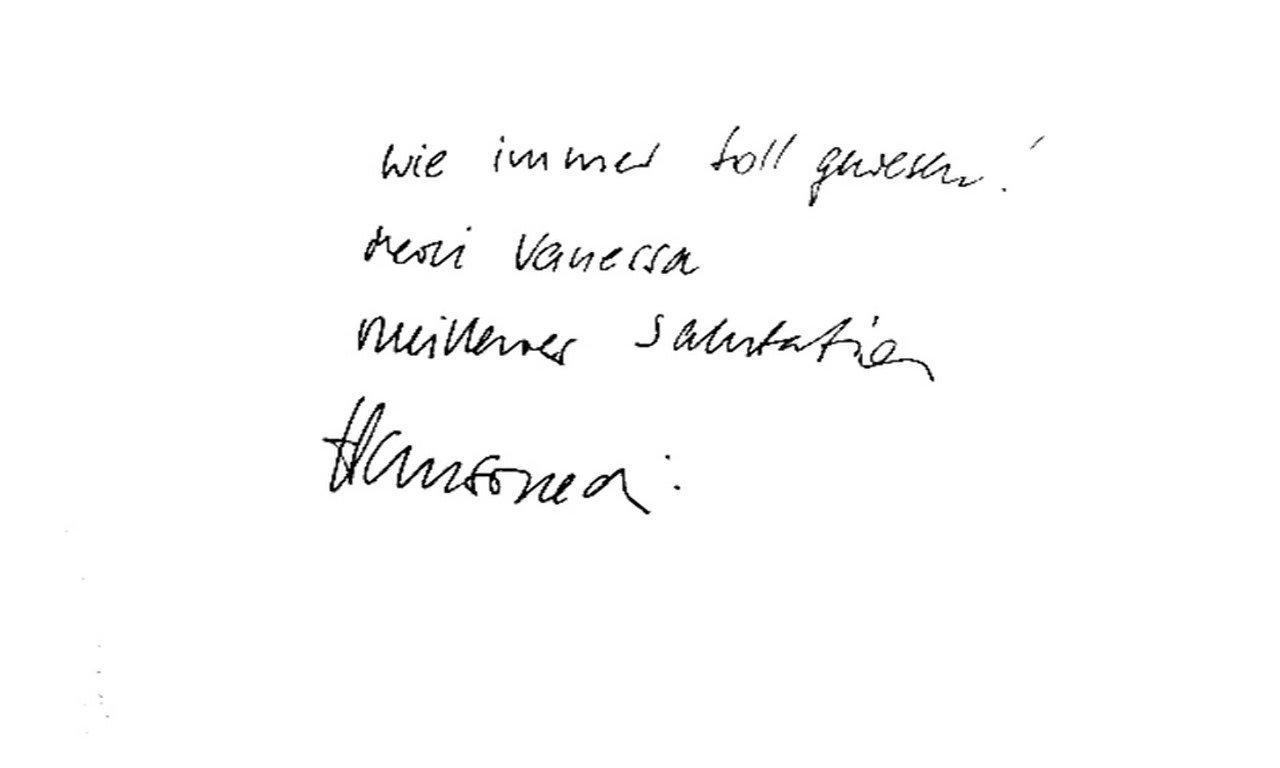 wie immer toll gewesen!
merci Vanessa
meilleures salutation